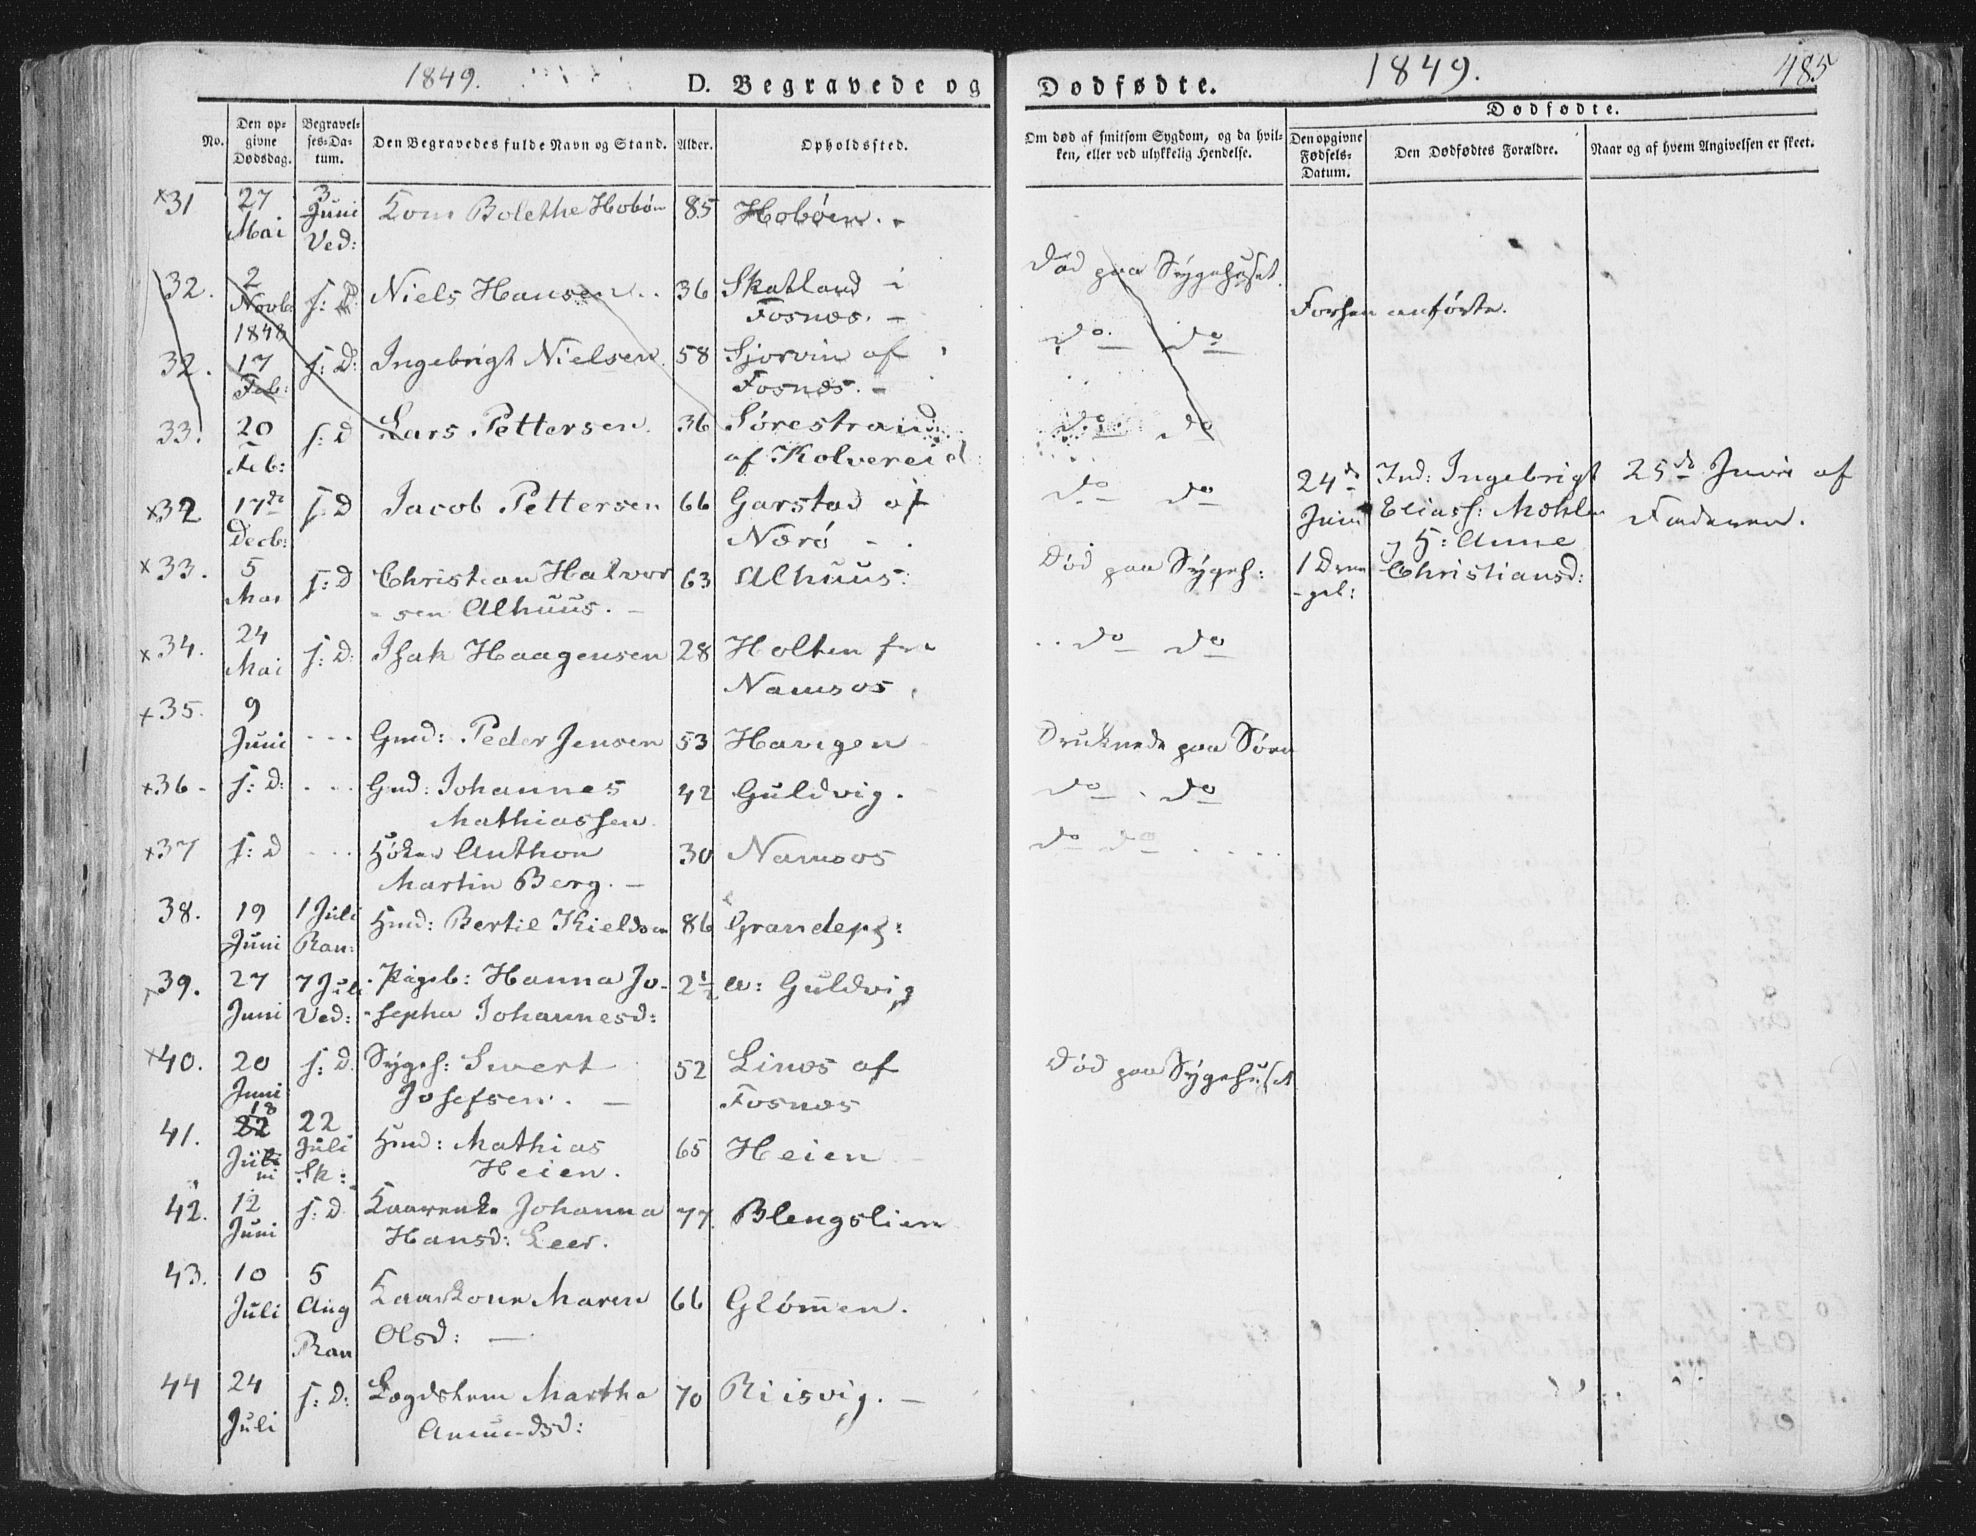 1849.
D. Begravede og
Dødfødte.
1849.
485
No.
Den opgivne Dødsdag.
Begravelses-Datum.
Den Begravedes fulde Navn og Stand.
Alder.
Opholdssted.
Om død af smitsom Sygdom, og da hvilken, eller ved ulykkelig Hendelse.
Dødfødte.
Den opgivne Fødsels-Datum.
Den Dødfødtes Forældre.
Naar og af hvem Angivelsen er skeet.
×31 27 Mai 3 Juni Ved: Kone Bolethe Hobøn 85 Hobøen. -
32. 2 Novb: 1848 s: D: Niels Hansen.. 36 Skatland i Fosnæs. - Død paa Sygehuset. Forhen anførte.
32. 17 Feb: s: D: Ingebrigt Nielsen. 58 Sjorvin af Fosnæs. - do do
33. 20 Feb: s: D Lars Pettersen. 36 Sørestrand af Kolvereid do do
×32 17de Decb: s: D Jacob Pettersen 66 Garstad af Nærø - . do do
24de Juni 1 Dren-geb: Ind: Ingebrigt Eliass: Møhlen og H: Anne Christiansd: 25de Juni af Faderen.
×33. 5 Mai s: D Christian Halvor-sen Alhuus. - 63 Alhuus: Død paa Sygeh:
×34. 24 Mai s: D: Isak Haagensen 28 Holten fra Namsos. do do
×35. 9 Juni - - - Gmd: Peder Jensen 53 Havigen Druknede paa Søen
×36 - s: D: . . . Gmd: Johannes Mathiassen 42 Guldvig. do . do
×37 s: D . . . Høker Anthon Martin Berg. - 30 Namsos do do . . . .
38. 19 Juni 1 Juli Ran: Hmd: Bertil Kieldsen 86 Grandepl:
×39. 27 Juni 7 Juli Ved: Pigeb: Hanna Jo-sepha Johannesd: 2½ a: Guldvig
×40. 20 Juni s: D. Sygeh: Sivert Josefsen. - 52 Linæs af Fosnæs Død paa Sygehuset
41. 18 Juni 22 Juli Sk: Hmd: Mathias Heien. 65 Heien
42. 12 Juni s: D Kaarenke Johanna Hansd: Leer. 77. Blengslien
43. 10 Juli 5 Aug Ran Kaarkone Maren Olsd: - 66 Glømen.
44 24 Juli s: D: Lægdslem Martha Amundsd: 70 Riisvig. -